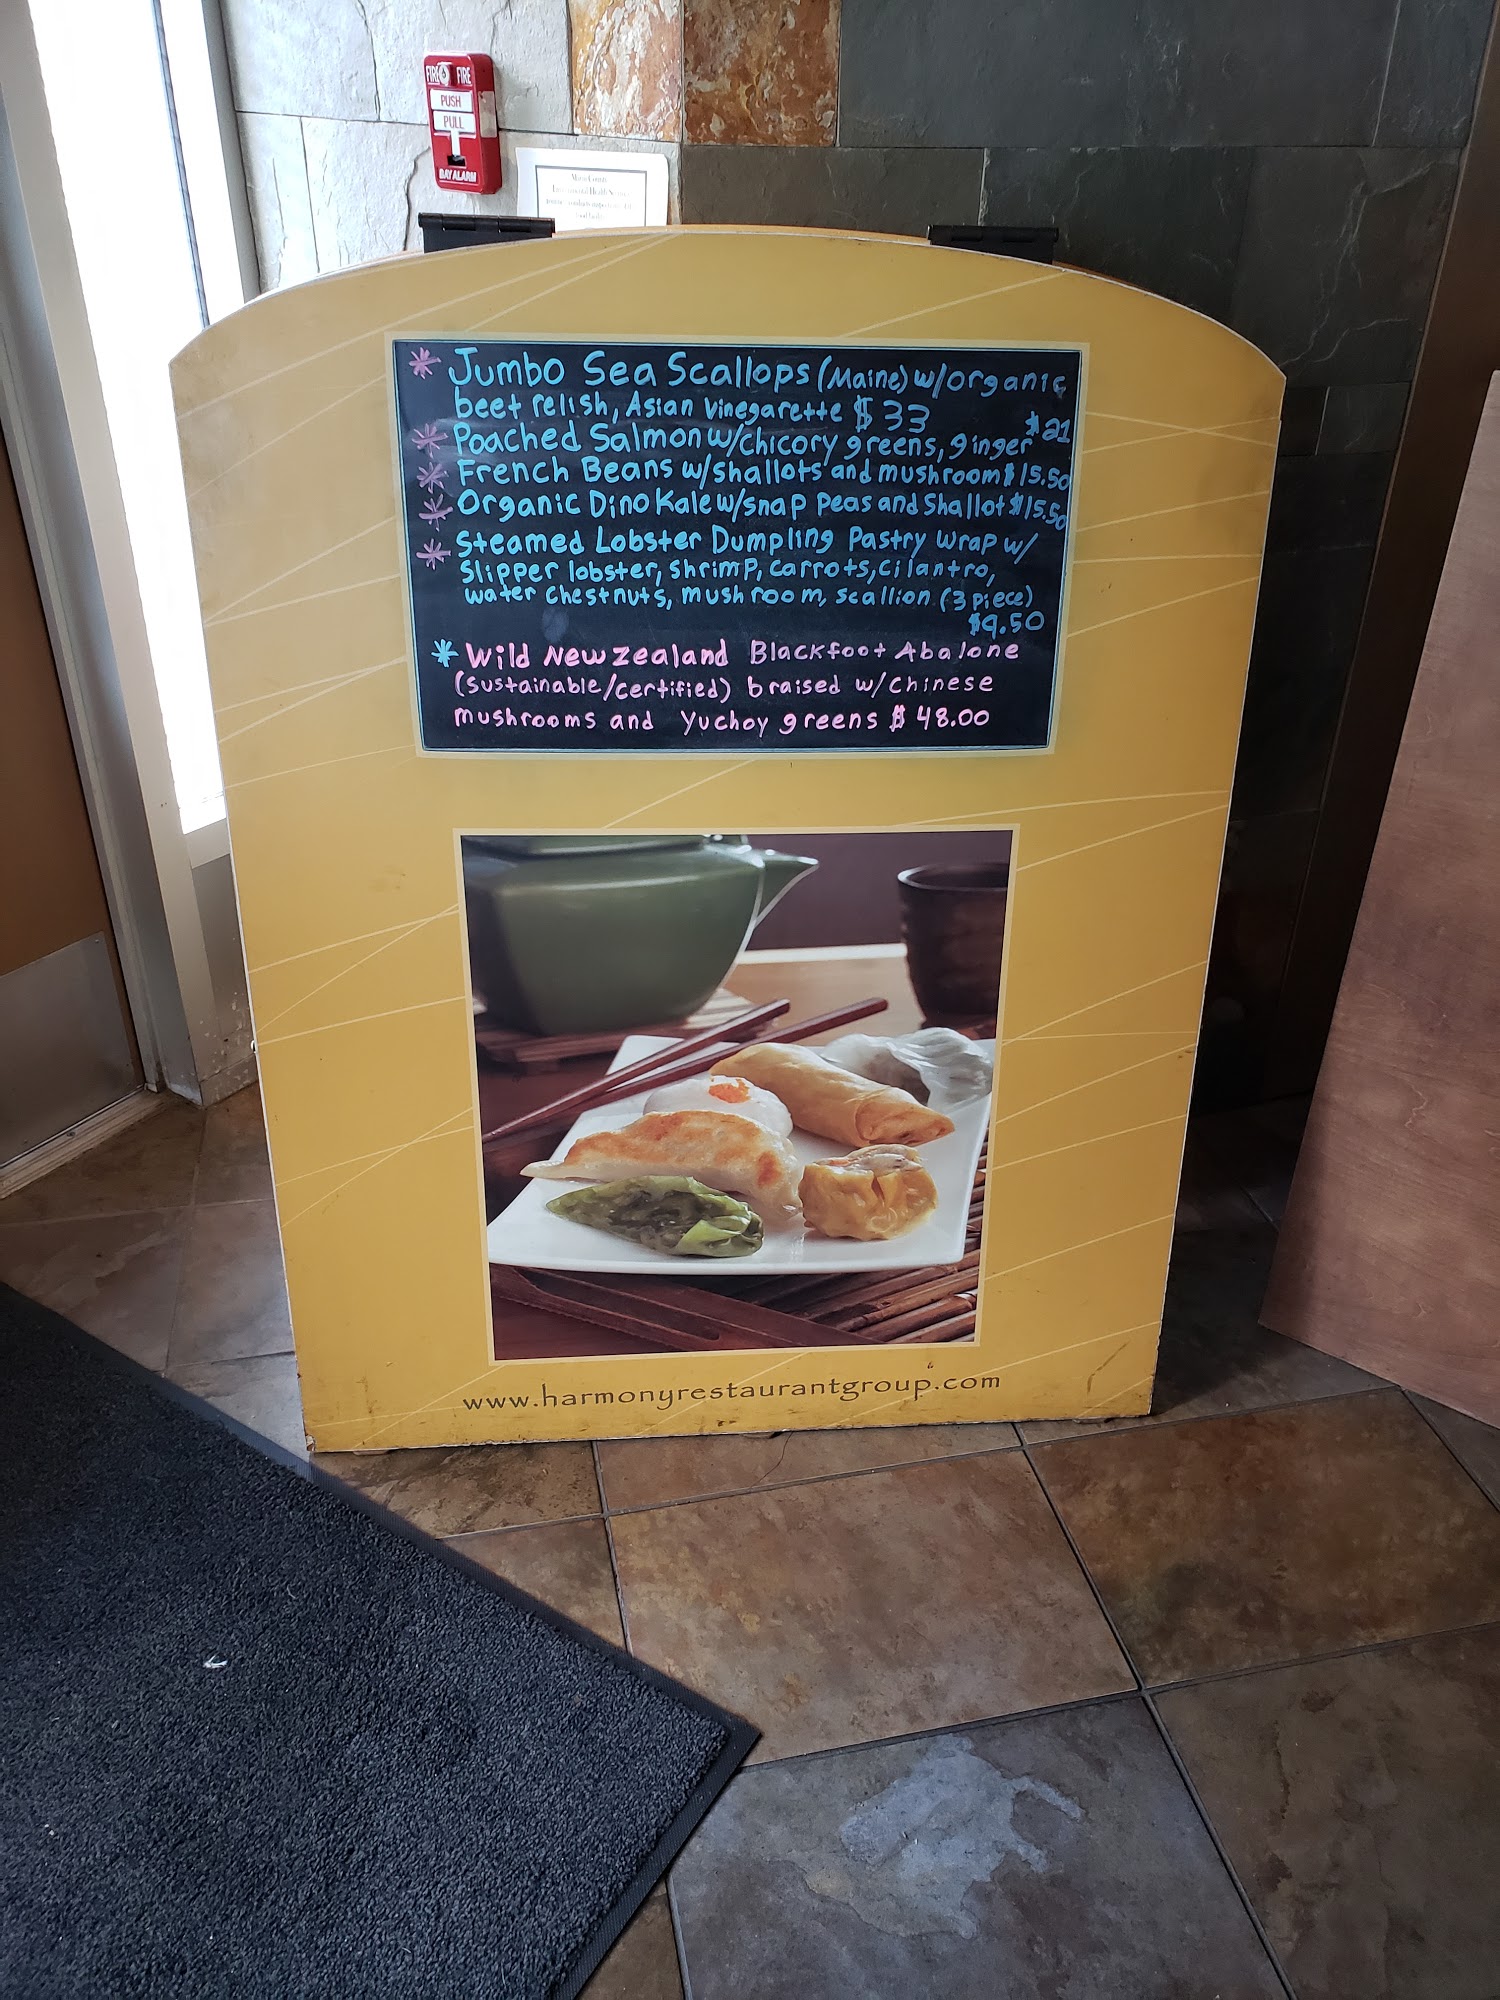 FIRE FIRE
PUSH
PULL
BAY ALARM
Marin County
* Jumbo Sea Scallops (Maine) w/organic
beet relish, Asian vinegarette $33
* Poached Salmon w/chicory greens, ginger $21
* French Beans w/shallots and mushroom $15.50
* Organic Dino Kale w/snap peas and Shallot $15.50
* Steamed Lobster Dumpling Pastry wrap w/
slipper lobster, shrimp, carrots, cilantro,
water chestnuts, mushroom, scallion (3 piece)
$9.50
* Wild New Zealand Blackfoot Abalone
(sustainable/certified) braised w/Chinese
mushrooms and Yuchoy greens $48.00
www.harmonyrestaurantgroup.com